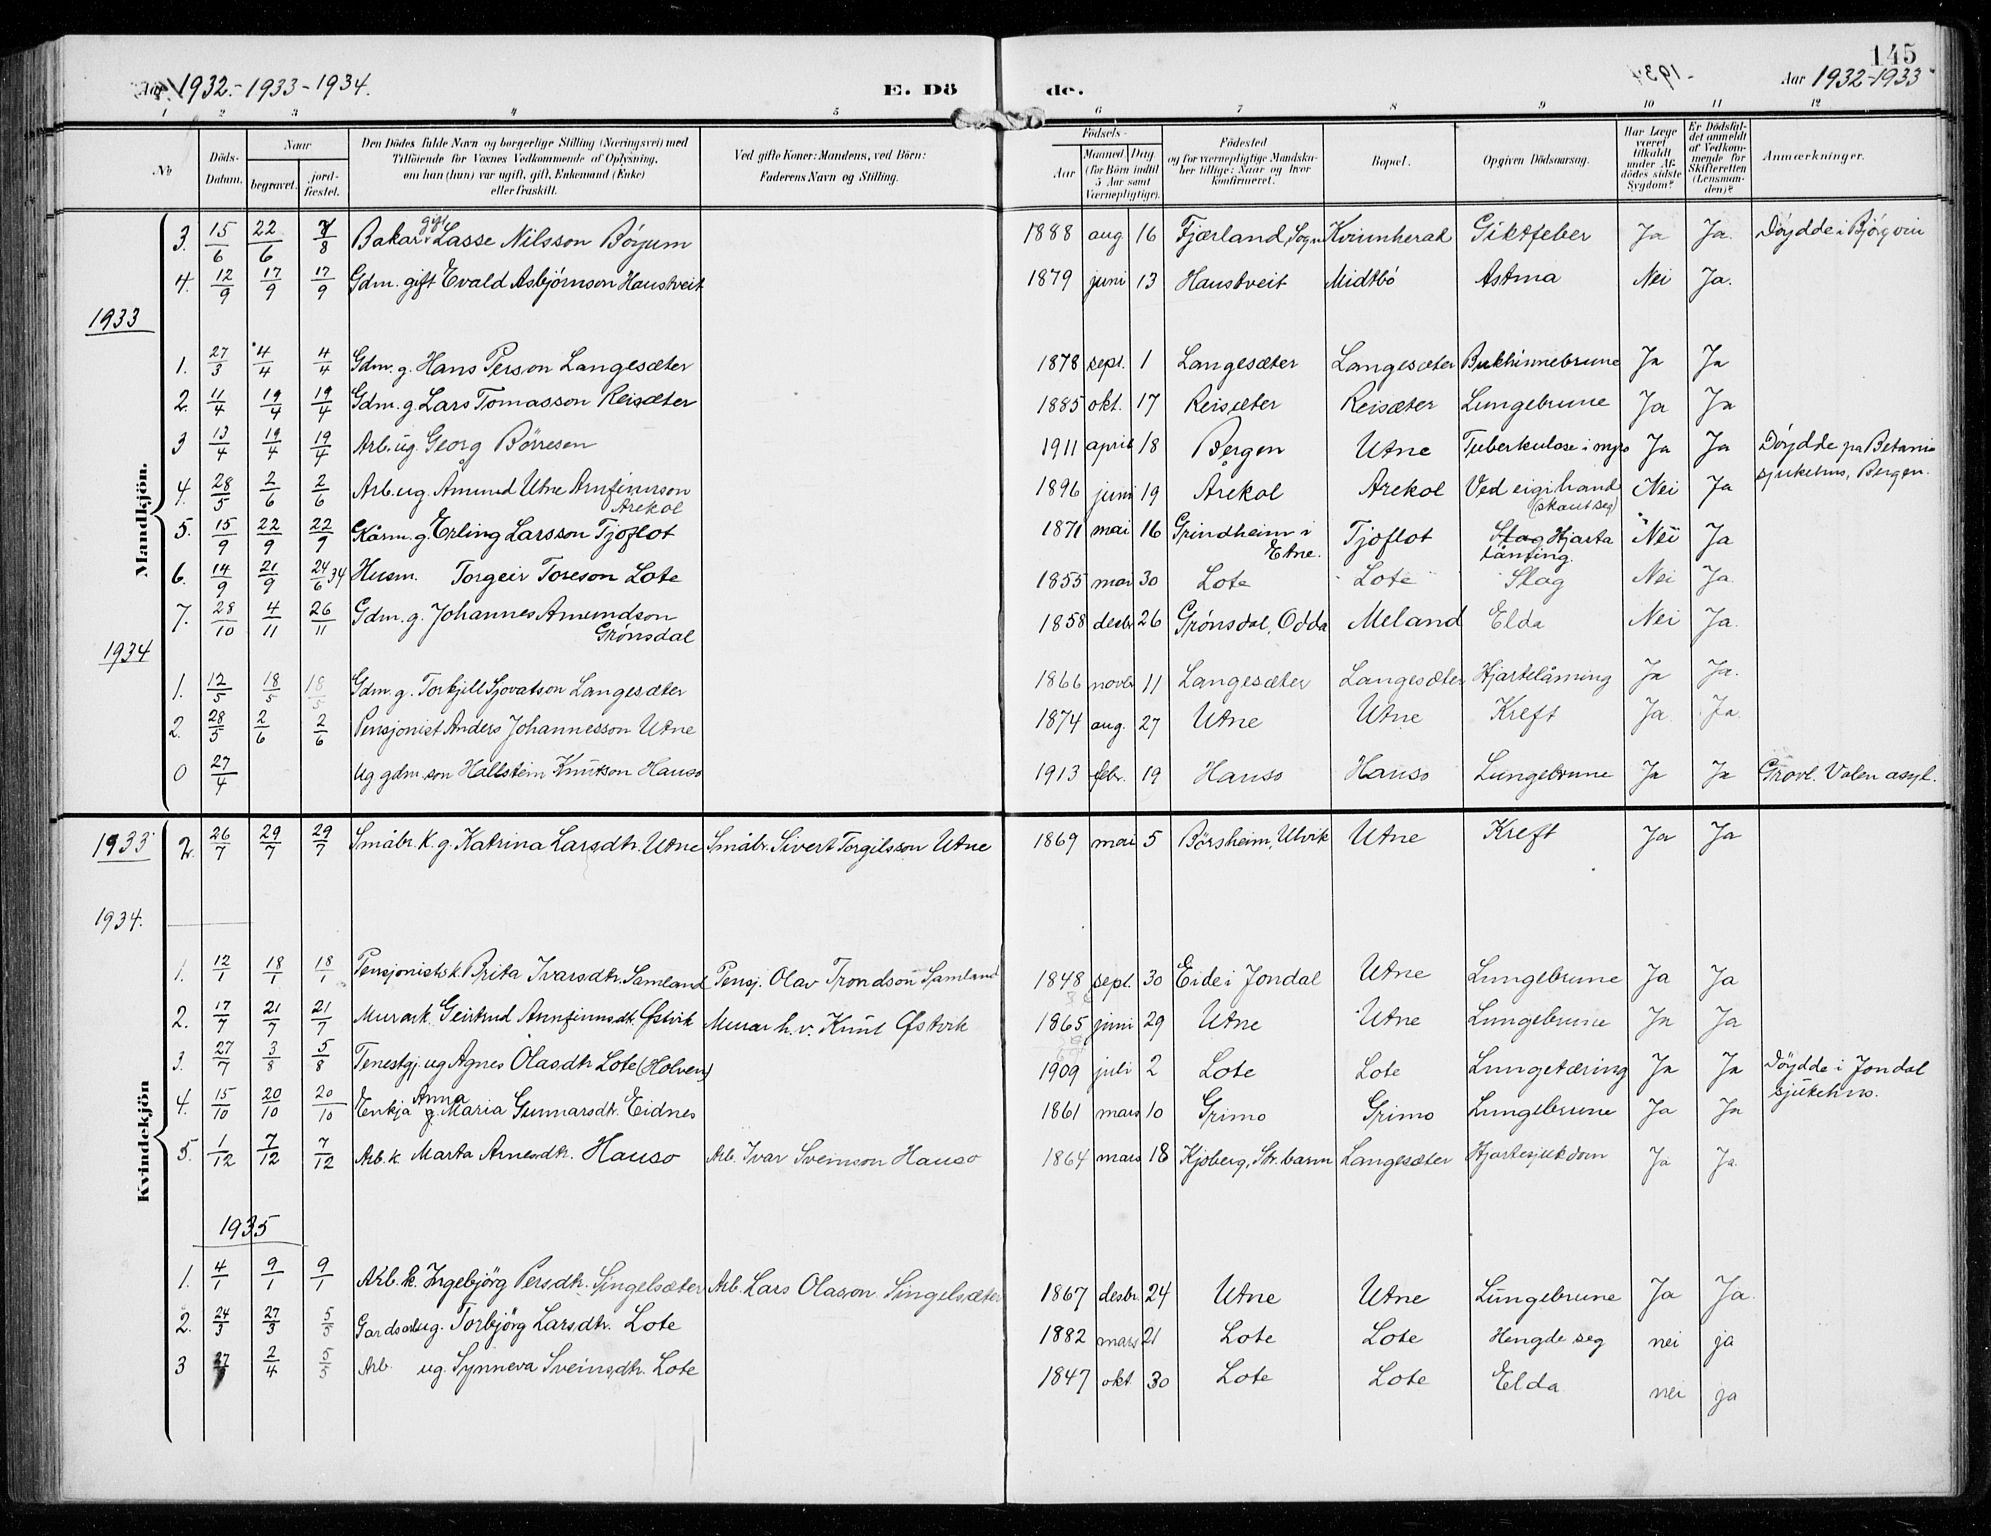 Aar 1932.-1933-1934. E. Dö de. -1934 Aar 1932-1933 145
1 2 3 4 5 6 7 8 9 10 11 12
No Döds-Datum. Naar begravet. jord-fæstet. Den Dödes fulde Navn og borgerlige Stilling (Næringsvei) med Tilföiende for Voxnes Vedkommende af Oplysning, om han (hun) var ugift, gift, Enkemand (Enke) eller fraskilt. Ved gifte Koner: Mandens, ved Börn: Faderens Navn og Stilling. Födsels- Aar Maaned Dag (for Börn indtil 5 Aar samt Værnepligtige). Födested og for værnepligtige Mandskaber tillige: Naar og hvor konfirmeret. Bopæl. Opgiven Dödsaarsag. Har Læge været tilkaldt under Afdödes sidste Sygdom? Er Dödsfaldet anmeldt af Vedkommende for Skifteretten (Lensmanden)? Anmærkninger.
Mandkjön.
3. 15/6 22/6 7/8 Bakar gift Lasse Nilsson Böyum 1888 aug 16 Fjærland, Sogn Kvinnherad Giktfeber Ja Ja. Döydde i Björgvin
4. 12/9 17/9 17/9 Gdm. gift Evald Asbjörnson Haustveit 1879 juni 13 Haustveit Midtbö Astma Nei Ja.
1933
1. 27/3 4/4 4/4 Gdm. g. Hans Person Langesæter 1878 sept. 1 Langesæter Langesæter Bukhinnebrune Ja Ja
2. 11/4 19/4 19/4 Gdm. g. Lars Tomasson Reisæter 1885 okt. 17 Reisæter Reisæter Lungebrune Ja Ja
3 13/4 19/4 19/4 Arb. ug. Georg Börresen 1911 april 18 Bergen Utne Tuberkulose i Ja Ja Döydde på Betania
sjukehus, Bergen.
4. 28/5 2/6 2/6 Arb. ug. Åmund Utne Arnfinnson 1896 juni 19 Årekol Arekol Ved eigi hand Nei Ja
Arekol (skaut seg)
5. 15/9 22/9 22/9 g. Erling Larsson Tjoflot 1871 mai 16 Grindheim i Tjoflot Slag Hjarta Nei Ja
Etne. låming.
6. 14/9 21/9 24/6 34 Husm. Torgeir Toreson Lote 1855 mai 30 Lote Lote Slag Nei Ja.
7. 28/10 4/11 26/11 Gdm. g. Johannes Amundson 1858 desbr 26 Grönsdal, Odda Meland Elda Nei Ja.
Grönsdal
1934
1. 12/5 18/5 18/5 Gdm. g. Torkjell Sjovatson Langesæter 1866 novbr 11 Langesæter Langesæter Hjartelåming Ja Ja.
2. 28/5 2/6 2/6 Pensjonist Anders Johannesson Utne 1874 aug. 27 Utne Utne Kreft Ja Ja
0 27/4 Ug gdm. son Hallstein Knutson Hauso 1913 febr. 19 Hauso Hauso Lungebrune Ja Ja Gravl. Valen asyl.
Kvindekjön
1933
2. 26/7 29/7 29/7 Småbr. k. g. Katrina Larsdtr. Utne Småbr. Sivert Torgilsson Utne 1869 mai 5 Börsheim, Ulvik Utne Kreft Ja Ja
1934.
1. 12/1 18/1 18/1 Pensjonistk. Brita Ivarsdtr. Samland Pensj. Olav Trondson Samland 1848 sept. 30 Eide i Jondal Utne Lungebrune Ja Ja
2. 17/7 21/7 21/7 Murark. Geirtrud Arnfinnsdt. Östvik Murar h. v. Knut Östvik 1865 juni 29 Utne Utne Lungebrune Ja Ja
3. 27/7 3/8 5/8 Tenestgj. ug Agnes Olasdtr Lote (Holven) 1909 juli 2 Lote Lote Lungetæring Ja Ja Döydde i Jondal
sjukehus.
4. 15/10 20/10 20/10 Enkja g. Anna Maria Gunnarsdt. Eidnes 1861 mars 10 Grimo Grimo Lungebrune Ja Ja
5. 1/12 7/12 7/12 Arb. k. Marta Arnesdtr. Hauso Arb. Ivar Sveinson Hauso 1864 mars 18 Kjoberg, Str. barm Langesæter Hjartesjukdom Ja Ja.
1935
1. 4/1 9/1 9/1 Arb. k. Ingebjörg Persdtr. Singelsæter Arb. Lars Olason Singelsæter 1867 desbr. 24 Utne Utne Lungebrune Ja Ja.
2. 24/3 27/3 5/5 Gardsarb ug. Torbjörg Larsdtr. Lote 1882 mars 21 Lote Lote Hengde seg nei ja
3 2/4 5/5 Arb. ug. Synneva Sveinsdtr. Lote 1847 okt 30 Lote Lote Elda nei ja